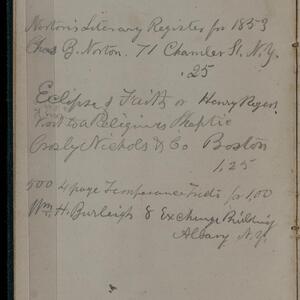 Norton's Literary Register for 1853
Chas B. Norton. 71 Chamber St. N.Y.
.25
Eclipse of Faith or Henry Rogers
Visit to a Religious Skeptic
Crosby Nichols & Co Boston
1.25
500 4 page Temperance Tracts for 1,00
Wm H. Burleigh 8 Exchange Building
Albany N.Y.